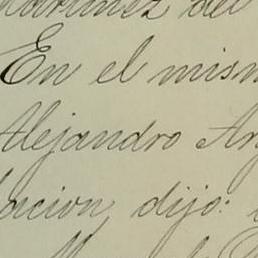 Martinez del
En el mism
Alejandro An
lacion, dijo: